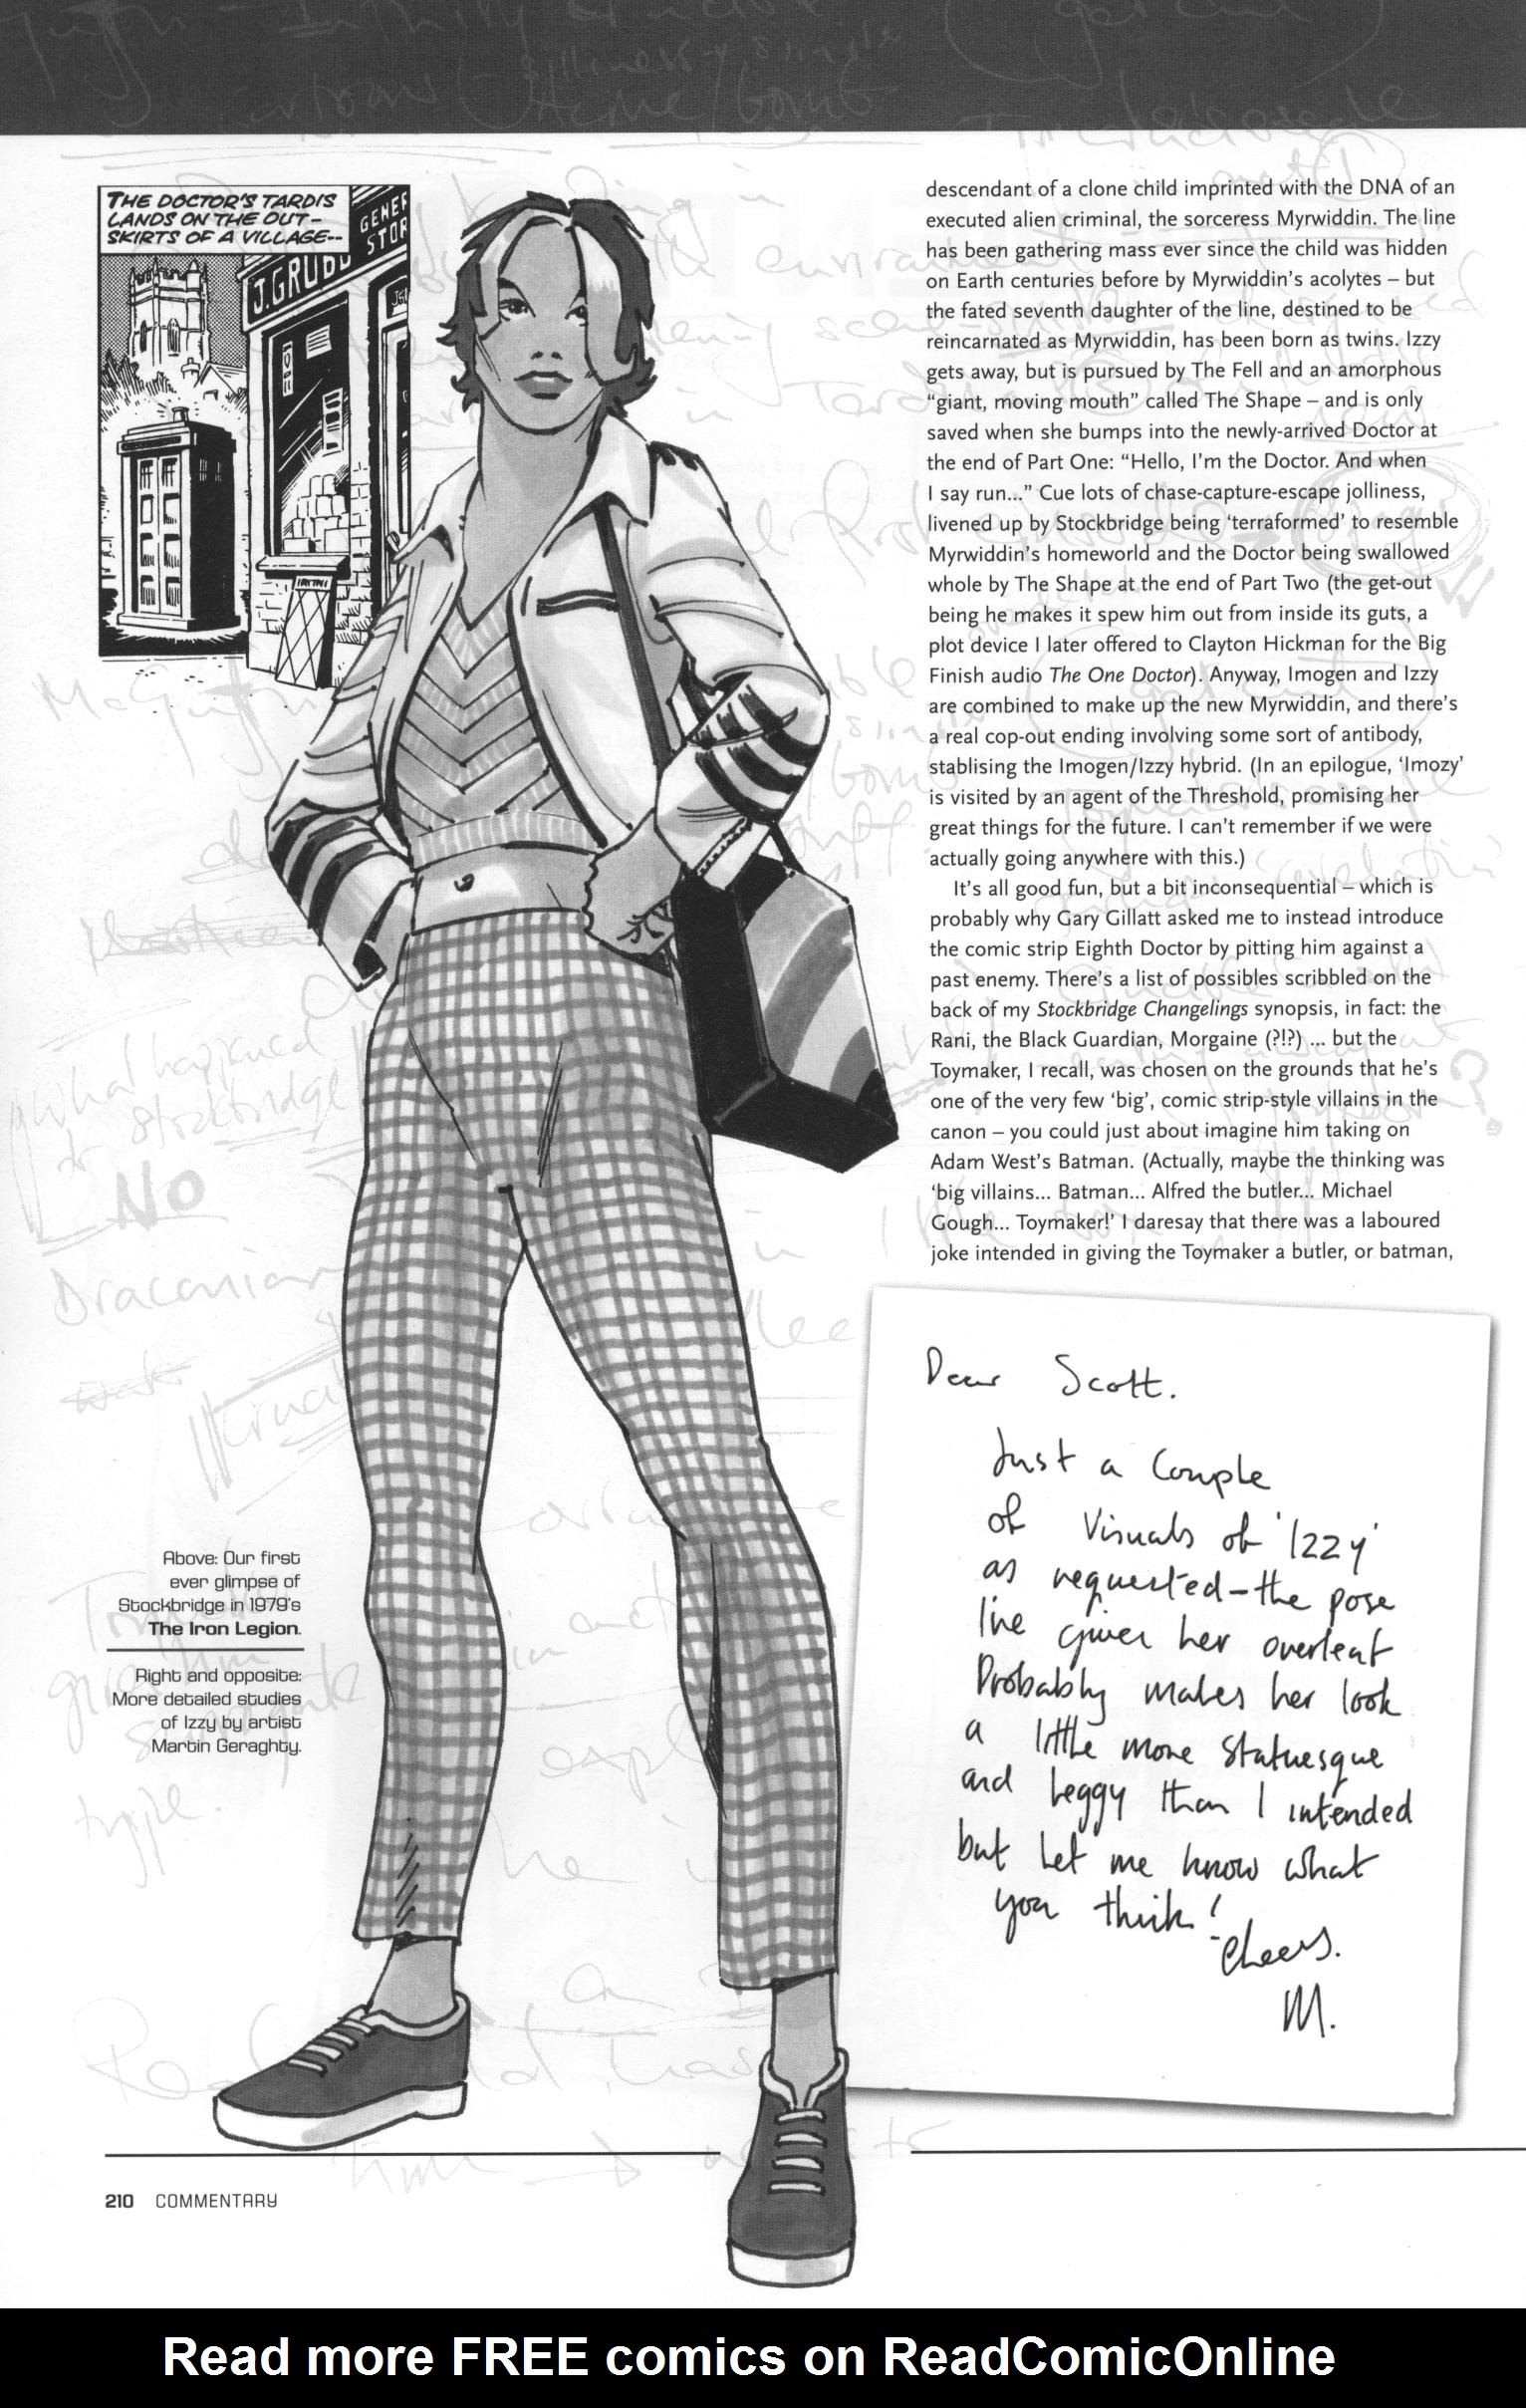 THE DOCTOR'S TARDIS
LANDS ON THE OUT-
SKIRTS OF A VILLAGE--
J. GRUBB
descendant of a clone child imprinted with the DNA of an
executed alien criminal, the sorceress Myrwiddin. The line
has been gathering mass ever since the child was hidden
on Earth centuries before by Myrwiddin's acolytes – but
the fated seventh daughter of the line, destined to be
reincarnated as Myrwiddin, has been born as twins. Izzy
gets away, but is pursued by The Fell and an amorphous
“giant, moving mouth” called The Shape – and is only
saved when she bumps into the newly-arrived Doctor at
the end of Part One: “Hello, I'm the Doctor. And when
I say run...” Cue lots of chase-capture-escape jolliness,
livened up by Stockbridge being ‘terraformed’ to resemble
Myrwiddin's homeworld and the Doctor being swallowed
whole by The Shape at the end of Part Two (the get-out
being he makes it spew him out from inside its guts, a
plot device I later offered to Clayton Hickman for the Big
Finish audio The One Doctor). Anyway, Imogen and Izzy
are combined to make up the new Myrwiddin, and there's
a real cop-out ending involving some sort of antibody,
stablising the Imogen/Izzy hybrid. (In an epilogue, ‘Imozy’
is visited by an agent of the Threshold, promising her
great things for the future. I can't remember if we were
actually going anywhere with this.)
It's all good fun, but a bit inconsequential – which is
probably why Gary Gillatt asked me to instead introduce
the comic strip Eighth Doctor by pitting him against a
past enemy. There's a list of possibles scribbled on the
back of my Stockbridge Changelings synopsis, in fact: the
Rani, the Black Guardian, Morgaine (?!?) ... but the
Toymaker, I recall, was chosen on the grounds that he's
one of the very few ‘big’, comic strip-style villains in the
canon – you could just about imagine him taking on
Adam West's Batman. (Actually, maybe the thinking was
‘big villains... Batman... Alfred the butler... Michael
Gough... Toymaker!’ I daresay that there was a laboured
joke intended in giving the Toymaker a butler, or batman,
What happened
to Stockbridge
NO
type.
Dear Scott.
Just a couple
of visuals of 'Izzy'
as requested – the pose
I've given her overleaf
Probably makes her look
a little more statuesque
and leggy than I intended
but let me know what
you think!
Cheers.
M.
Above: Our first
ever glimpse of
Stockbridge in 1979's
The Iron Legion.
Right and opposite:
More detailed studies
of Izzy by artist
Martin Geraghty.
210 COMMENTARY
Read more FREE comics on ReadComicOnline